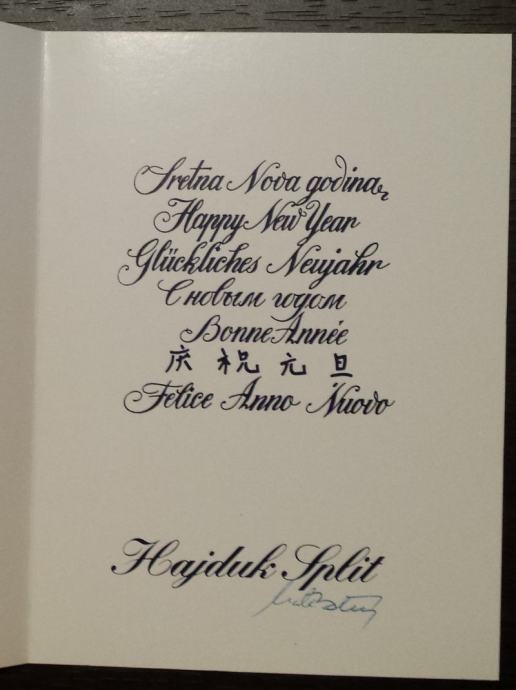 Sretna Nova godina,
Happy New Year
Glückliches Neujahr
С новым годом
Bonne Année
庆祝元旦
Felice Anno Nuovo
Hajduk Split